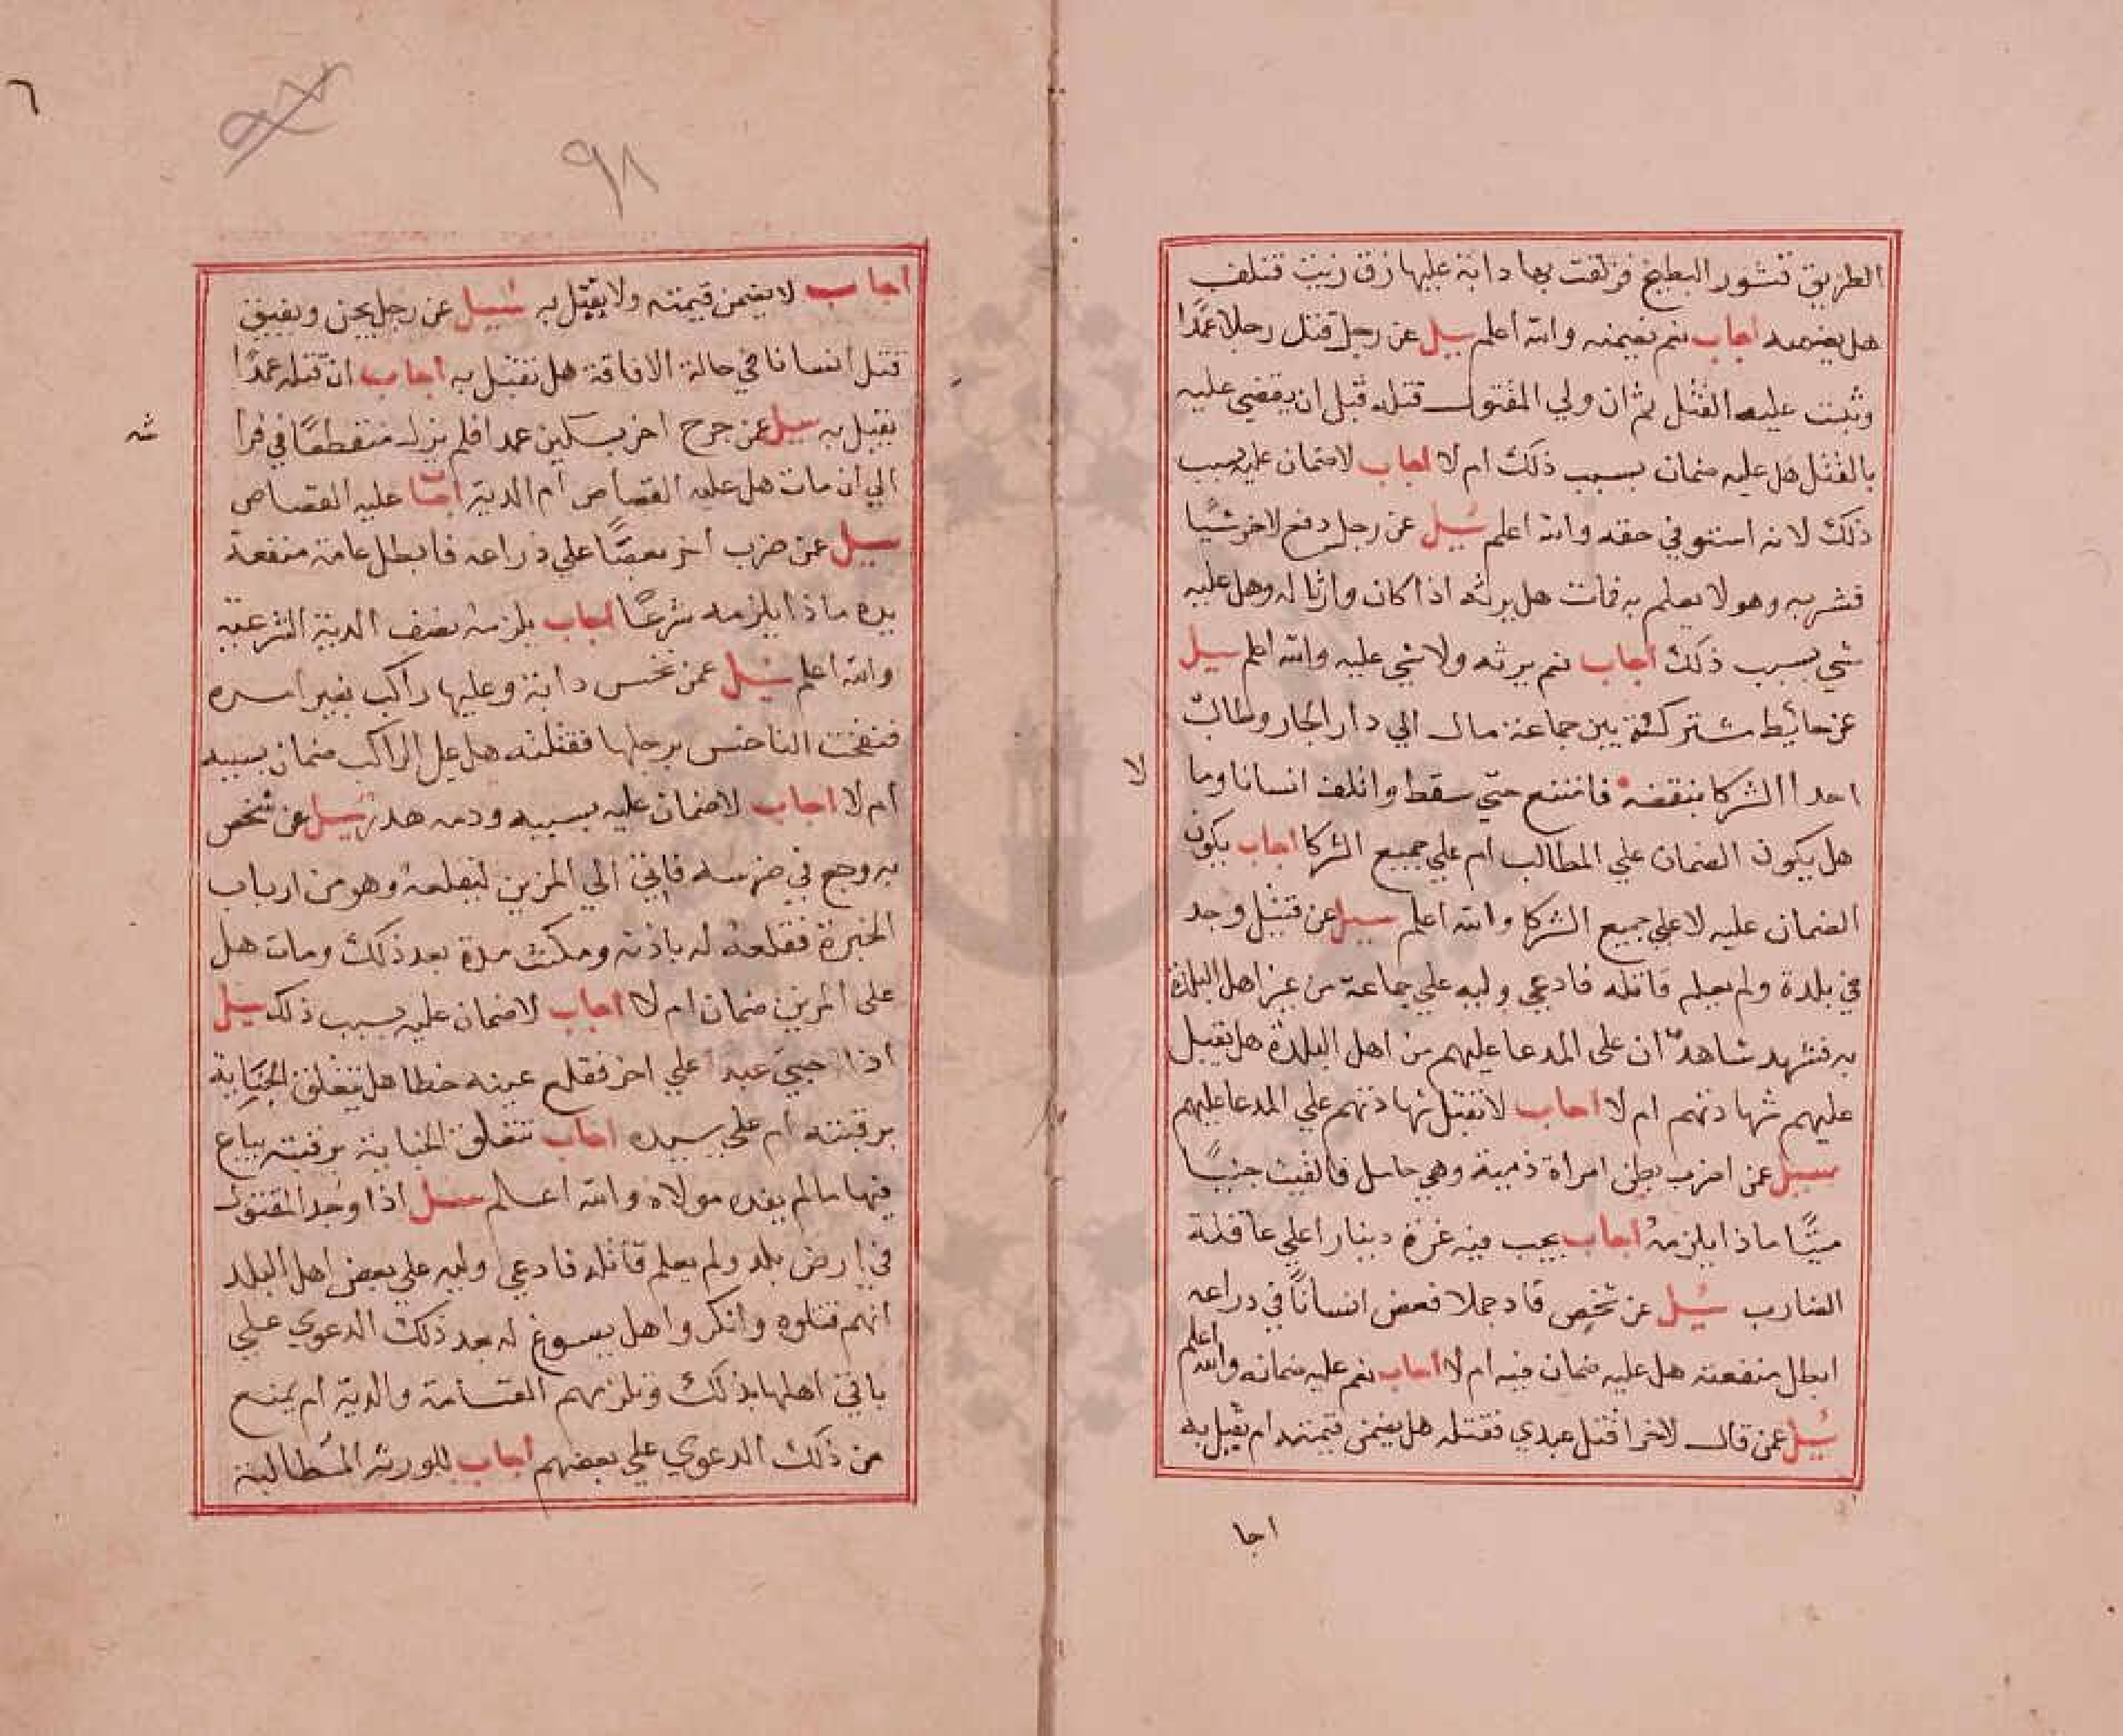 الطريق قشور البطيخ فزلقت بها دابة عليها زق زيت فتلف
هل يضمنه اجاب نعم بقيمته والله اعلم سيل عن رجل قتل رجلا عمدًا
وثبت عليه القتل ثم ان ولي المقتول قتله قبل ان يقضي عليه
بالقتل هل عليه ضمان بسبب ذلك ام لا اجاب لا ضمان عليه بسبب
ذلك لانه استوفي حقه والله اعلم سُيل عن رجل دفع لاخر شيًا
فشربه وهو لا يعلم به فمات هل يرثه اذا كان وارثا له وهل عليه
شي بسبب ذلك اجاب نعم يرثه ولا شي عليه والله اعلم سيل
عن حائط مشتركة بين جماعة مال الي دار الجار وطالب
احد الشركا بنقضه فامتنع حتي سقط واتلف انسانا وما
لا
هل يكون الضمان علي المطالب ام علي جميع الشركا اجاب يكون
الضمان عليه لا علي جميع الشركا والله اعلم سيل عن قتيل وجد
في بلدة ولم يعلم قاتله فادعي وليه علي جماعة من غير اهل البلدة
به فشهد شاهدٌ ان على المدعا عليهم من اهل البلدة هل تقبل
عليهم شهادتهم ام لا اجاب لا تقبل شهادتهم علي المدعا عليهم
سيل عن اضرب بطن امراة ذمية وهي حامل فالقيت جنينًا
ميتًا ماذا يلزمهُ اجاب يجب فيه غرة دينارا علي عاقلة
الضارب سُيل عن شخص قاد جملا فعض انسانًا في دراعه
ابطل منفعته هل عليه ضمان فيه ام لا اجاب نعم عليه ضمانه والله اعلم
سُيل عمن قال لاخر اقتل عبدي فقتله هل يضمن قيمته ام يقتل به
اجا
٦
٩٨
اجاب لا يضمن قيمته ولا يقتل به سُيل عن رجل يجن ويفيق
قتل انسانا في حالة الافاقة هل تقتل به اجاب ان قتله عمدًا
يقتل به سيل عن جرح اخر بسكين عمدا فلم يزل منقطعًا في فرا
شه
الي ان مات هل عليه القصاص ام الدية اجاب عليه القصاص
سيل عن ضرب اخر بعصًا علي ذراعه فابطل عامة منفعة
يده ماذا يلزمه شرعًا اجاب يلزمه نصف الدية الشرعية
والله اعلم سُيل عمن نخس دابة وعليها راكب بغير امره
فنفخت الناخس برجلها فقتلته هل علي الراكب ضمان بسببه
ام لا اجاب لا ضمان عليه بسببه ودمه هدر سُيل عن شخص
به وجع في ضرسه فاتي الي المزين ليقلعه وهو من ارباب
الخبرة فقلعه له باذنه ومكث مدة بعد ذلك ومات هل
على المزين ضمان ام لا اجاب لا ضمان عليه بسبب ذلك سيل
اذا جني عبد علي اخر فقلع عينه خطا هل تتعلق الجناية
برقبته ام علي سيده اجاب تتعلق الجناية برقبته يباع
فيها ما لم يفده مولاه والله اعلم سيل اذا وجد المقتول
في ارض بلد ولم يعلم قاتله فادعي وليه علي بعض اهل البلد
انهم قتلوه وانكروا هل يسوغ له بعد ذلك الدعوي علي
باقي اهلها بذلك وتلزمهم القسامة والدية ام يمنع
من ذلك الدعوي علي بعضهم اجاب للورثة المطالبة